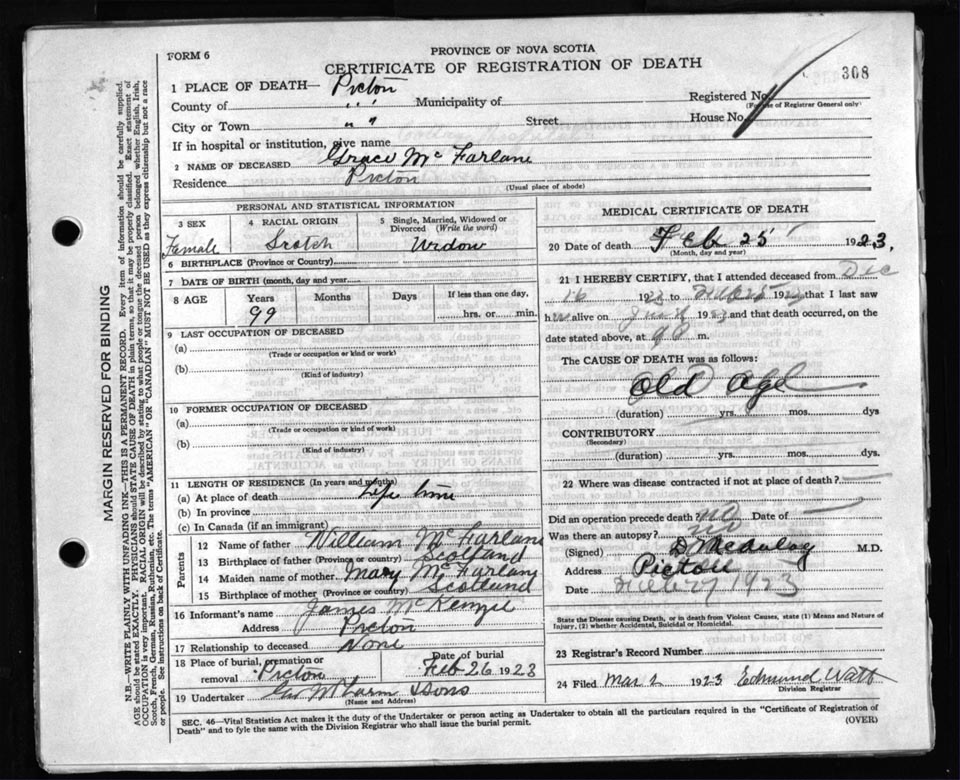 PROVINCE OF NOVA SCOTIA
FORM 6
CERTIFICATE OF REGISTRATION OF DEATH
308
1 PLACE OF DEATH— Picton
Registered No.
(For use of Registrar General only)
County of " " Municipality of
House No.
City or Town " " Street
If in hospital or institution, give name
2 NAME OF DECEASED Grace McFarlane
Residence Picton
(Usual place of abode)
PERSONAL AND STATISTICAL INFORMATION
3 SEX
4 RACIAL ORIGIN
5 Single, Married, Widowed or Divorced (Write the word)
Female Scotch Widow
6 BIRTHPLACE (Province or Country)
7 DATE OF BIRTH (month, day and year)
8 AGE Years Months Days If less than one day,
99 hrs. or min.
9 LAST OCCUPATION OF DECEASED
(a)
(Trade or occupation or kind or work)
(b)
(Kind of industry)
10 FORMER OCCUPATION OF DECEASED
(a)
(Trade or occupation or kind of work)
(b)
(Kind of industry)
11 LENGTH OF RESIDENCE (In years and months)
(a) At place of death Life time
(b) In province
(c) In Canada (if an immigrant)
Parents
12 Name of father William McFarlane
13 Birthplace of father (Province or country) Scotland
14 Maiden name of mother Mary McFarlane
15 Birthplace of mother (Province or country) Scotland
16 Informant's name James McKenzie
Address Picton
17 Relationship to deceased None
18 Place of burial, cremation or removal Picton
Date of burial Feb 26 1923
19 Undertaker & Sons
(Name and Address)
MEDICAL CERTIFICATE OF DEATH
20 Date of death Feb 25 1923,
(Month, day and year)
21 I HEREBY CERTIFY, that I attended deceased from Dec
16 19 to Feb 25 1923 that I last saw
h alive on 1923 and that death occurred, on the
date stated above, at m.
The CAUSE OF DEATH was as follows:
Old Age
(duration) yrs. mos. dys
CONTRIBUTORY
(Secondary)
(duration) yrs. mos. dys.
22 Where was disease contracted if not at place of death?
Did an operation precede death? no Date of
Was there an autopsy? no
(Signed) D McAulay M.D.
Address Pictou
Date Feb 27 1923
State the Disease causing Death, or in death from Violent Causes, state (1) Means and Nature of
Injury, (2) whether Accidental, Suicidal or Homicidal.
23 Registrar's Record Number
24 Filed Mar 2 1923 Edmund Watt
Division Registrar
SEC. 46—Vital Statistics Act makes it the duty of the Undertaker or person acting as Undertaker to obtain all the particulars required in the "Certificate of Registration of
Death" and to fyle the same with the Division Registrar who shall issue the burial permit.
(OVER)
MARGIN RESERVED FOR BINDING
N.B.—WRITE PLAINLY WITH UNFADING INK—THIS IS A PERMANENT RECORD. Every item of information should be carefully supplied.
AGE should be stated EXACTLY. PHYSICIANS should STATE CAUSE OF DEATH in plain terms, so that it may be properly classified. Exact statement of
OCCUPATION is very important. RACIAL ORIGIN will be described by stating to what people or tongue the deceased person belonged whether English, Irish,
Scotch, French, German, Russian, Ruthenian, etc. The terms "AMERICAN" OR "CANADIAN" MUST NOT BE USED as they express citizenship but not a race
or people. See instructions on back of Certificate.